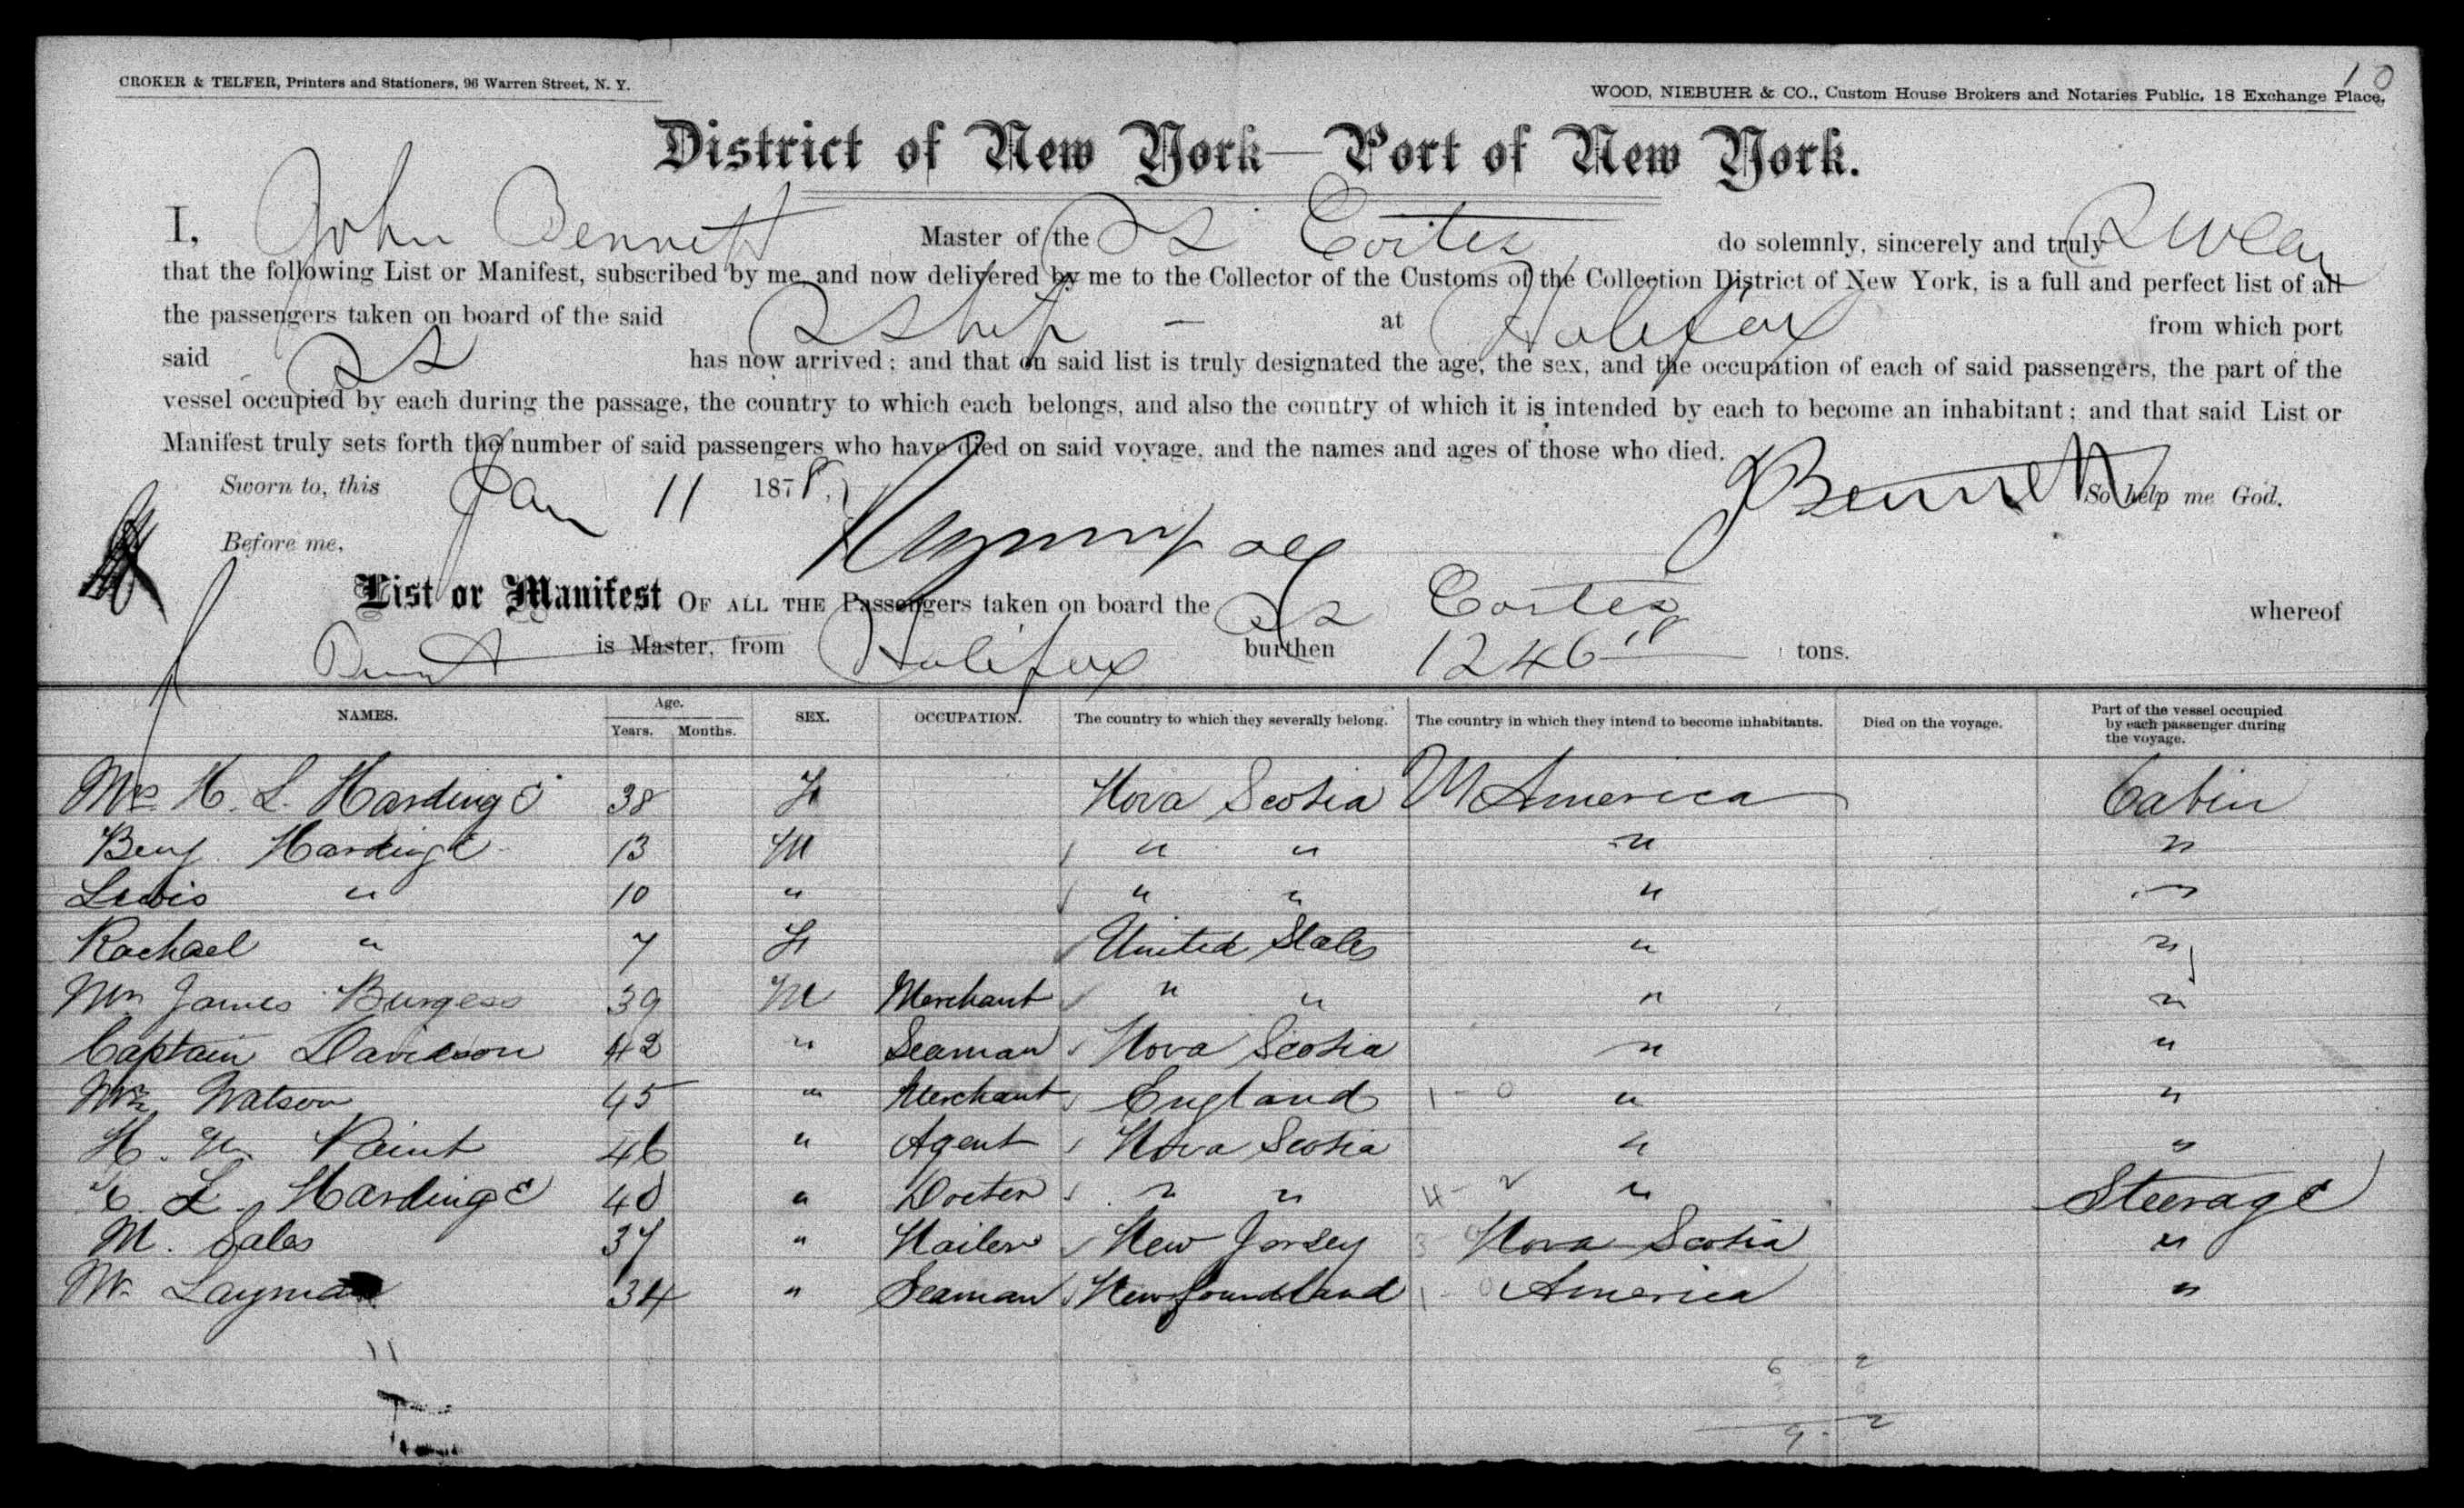 10
CROKER & TELFER, Printers and Stationers, 96 Warren Street, N. Y.
WOOD, NIEBUHR & CO., Custom House Brokers and Notaries Public, 18 Exchange Place.
District of New York—Port of New York.
I, John Bennett Master of the SS Cortes do solemnly, sincerely and truly Swear
that the following List or Manifest, subscribed by me and now delivered by me to the Collector of the Customs of the Collection District of New York, is a full and perfect list of all
the passengers taken on board of the said SShip — at Halifax from which port
said SS has now arrived; and that on said list is truly designated the age, the sex, and the occupation of each of said passengers, the part of the
vessel occupied by each during the passage, the country to which each belongs, and also the country of which it is intended by each to become an inhabitant; and that said List or
Manifest truly sets forth the number of said passengers who have died on said voyage, and the names and ages of those who died.
Sworn to, this Jan 11 1878, JBennett So help me God.
Before me,
List or Manifest OF ALL THE Passengers taken on board the SS Cortes whereof
Bennett is Master, from Halifax burthen 1246 tons.
NAMES. Age. Years. Months. SEX. OCCUPATION. The country to which they severally belong. The country in which they intend to become inhabitants. Died on the voyage. Part of the vessel occupied by each passenger during the voyage.
Mrs H. L. Hardinge 38 F Nova Scotia America Cabin
Benj Hardinge 13 M " " " "
Lewis " 10 " " " " "
Rachael " 7 F United States " "
Mr James Burgess 39 M Merchant " " " "
Captain Davidson 42 " Seaman Nova Scotia " "
Mr Watson 45 " Merchant England 1 - 0 " "
H. N. Paint 46 " Agent Nova Scotia " "
L. Hardinge 40 " Docter " " 4 - 2 " Steerage
M. Sales 37 " Nailer New Jersey 3 Nova Scotia "
W. Layman 34 " Seaman Newfoundland 1 - 0 America "
11
6 2
9 - 2